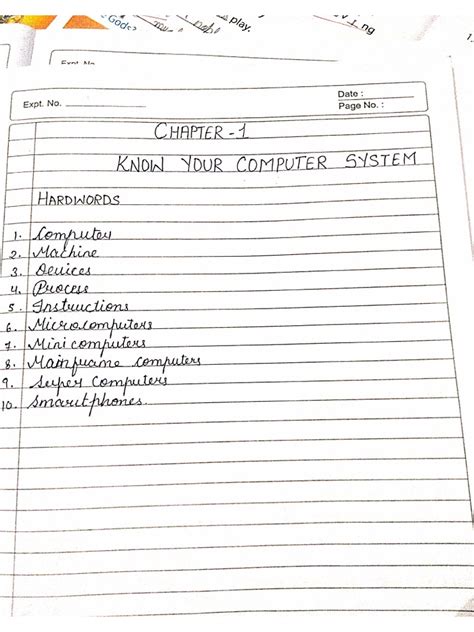 God?
play.
ng
1.
Expt. No.
Expt. No.
Date :
Page No. :
CHAPTER - 1
KNOW YOUR COMPUTER SYSTEM
HARDWORDS
1. Computer
2. Machine
3. Devices
4. Process
5. Instructions
6. Microcomputers
7. Mini computers
8. Mainframe computers
9. Super Computers
10. Smartphones.